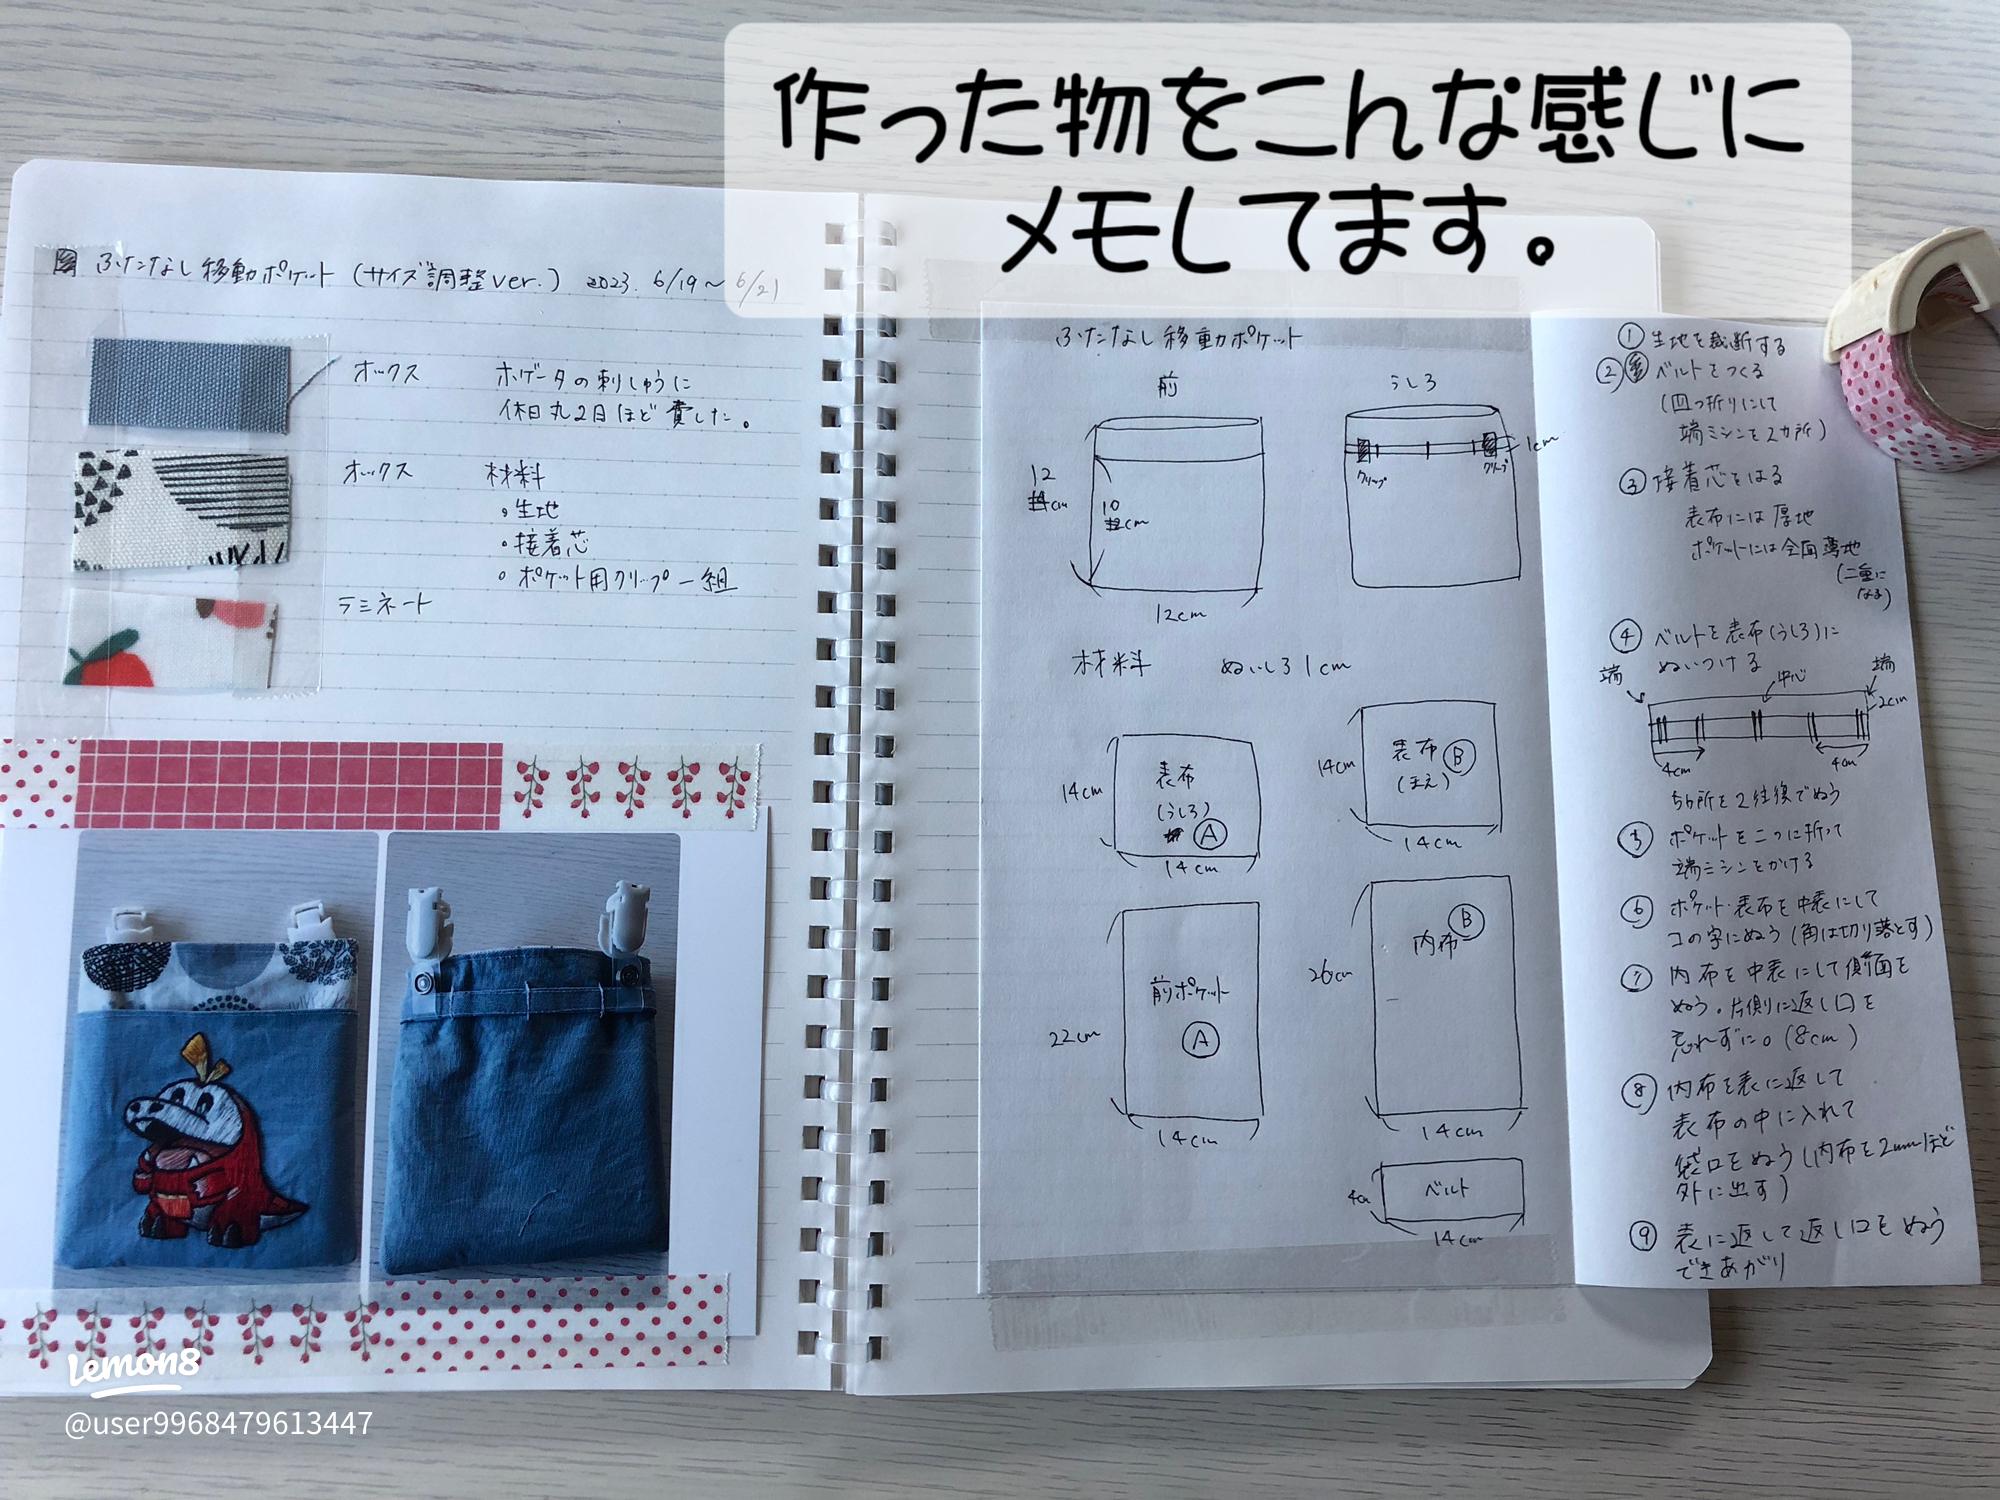 作った物をこんな感じに
メモしてます。
ふたなし移動ポケット (サイズ調整ver.) 2023. 6/19~6/21
オックス
ホゲータの刺しゅうに
休日丸2日ほど費した。
オックス
材料
・生地
・接着芯
・ポケット用クリップ一組
ラミネート
ふたなし移動ポケット
前
うしろ
12
cm
10
cm
12cm
1cm
クリップ
クリップ
材料 ぬいしろ1cm
表布
(うしろ)
A
14cm
14cm
表布 B
(まえ)
14cm
14cm
前ポケット
A
22cm
14cm
B
内布
26cm
14cm
ベルト
4cm
14cm
① 生地を裁断する
② ベルトをつくる
(四つ折りにして
端ミシンを2カ所)
③ 接着芯をはる
表布には厚地
ポケットには全面薄地
(二重に
なる)
④ ベルトを表布(うしろ)に
ぬいつける
端
中心
端
2cm
4cm
4cm
5カ所を2往復でぬう
⑤ ポケットを二つに折って
端ミシンをかける
⑥ ポケット・表布を中表にして
コの字にぬう(角は切り落とす)
⑦ 内布を中表にして側面を
ぬう。片側に返し口を
忘れずに。(8cm)
⑧ 内布を表に返して
表布の中に入れて
袋口をぬう(内布を2mmほど
外に出す)
⑨ 表に返して返し口をぬう
できあがり
Lemon8
@user9968479613447